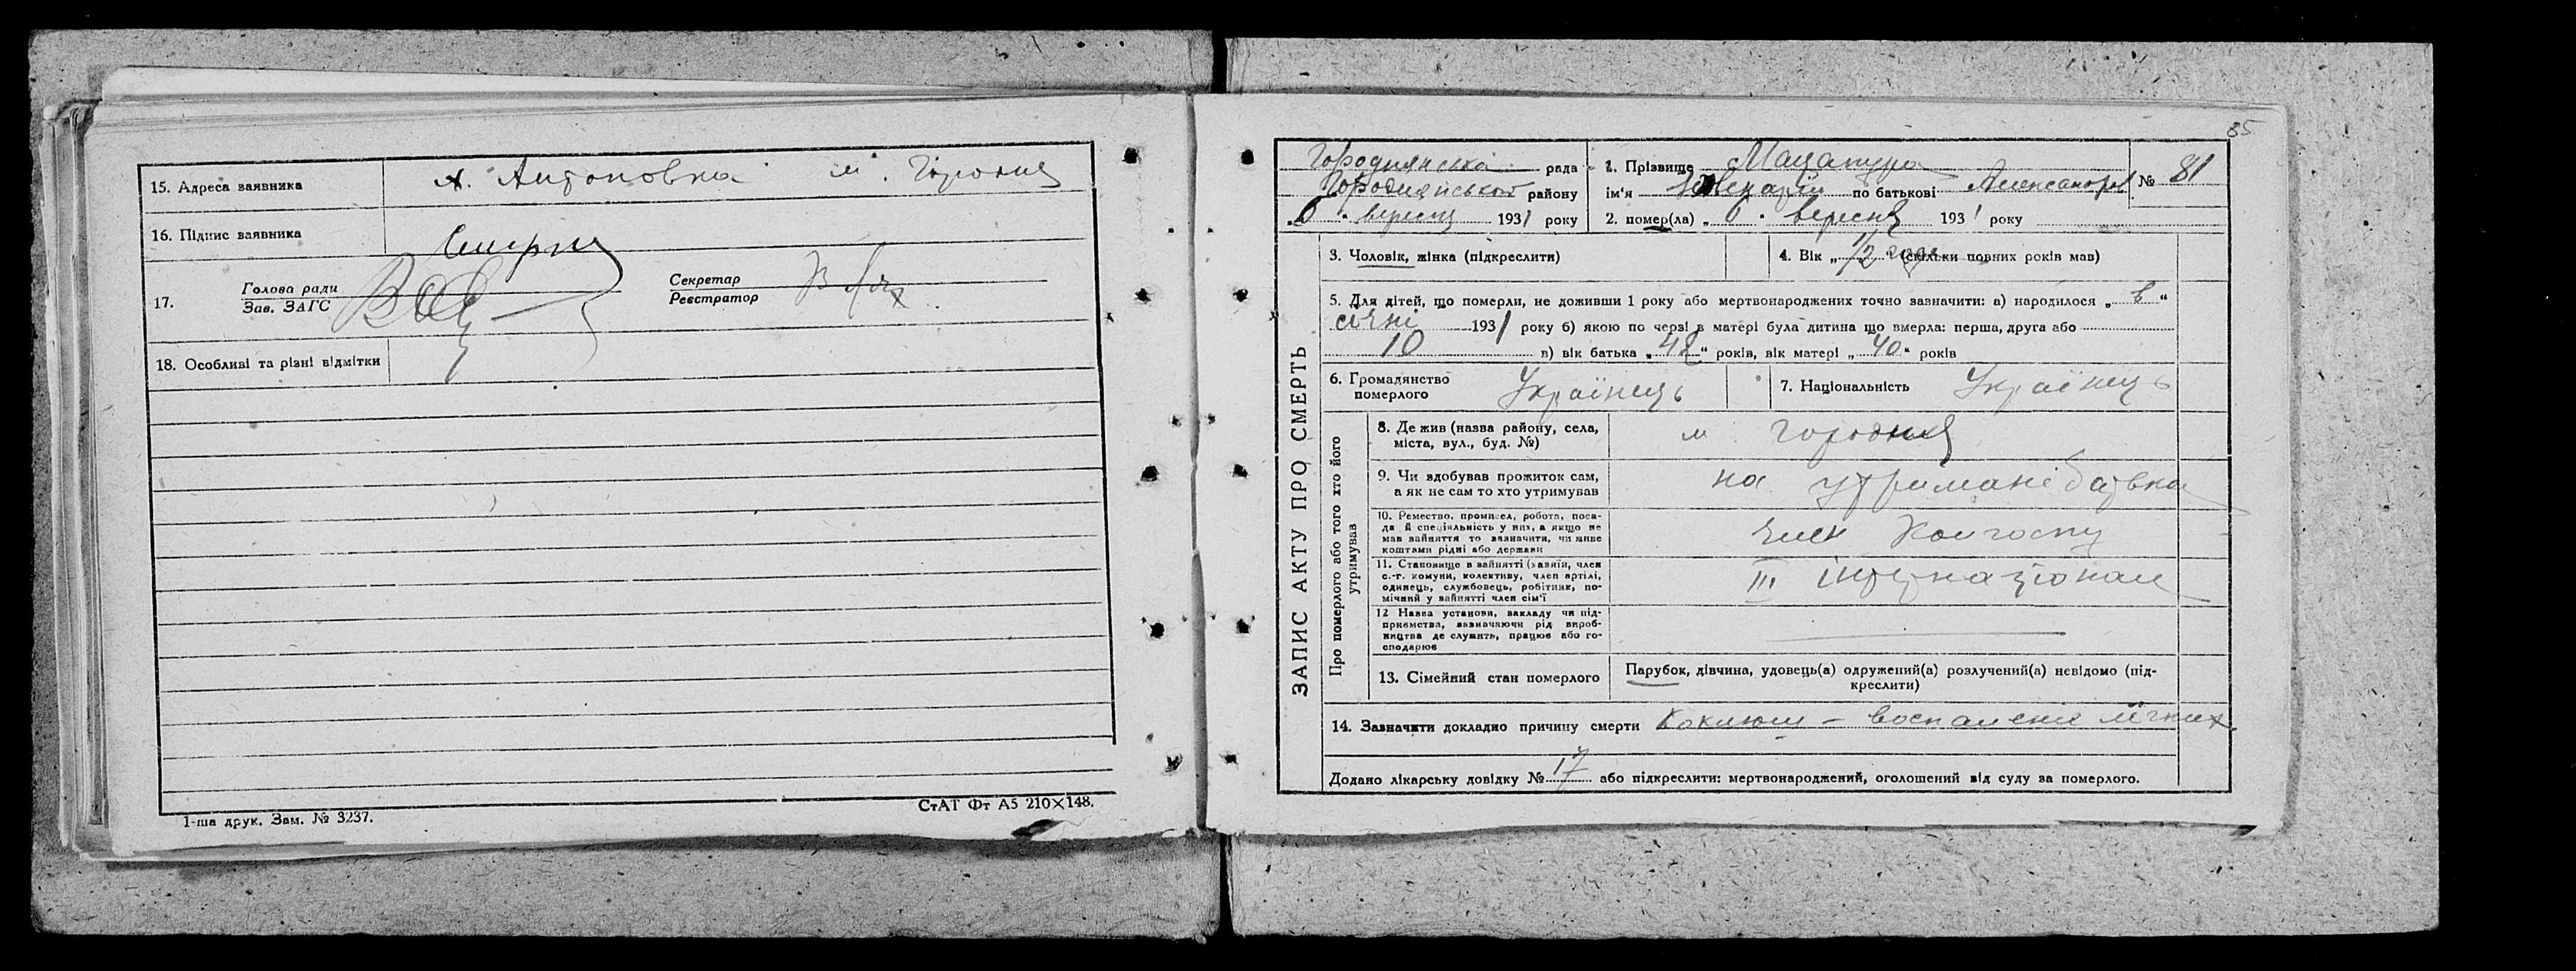 15. Адреса заявника х. Антоновка м. Городня
16. Підпис заявника
17. Голова ради
Зав. ЗАГС
Секретар
Реєстратор
18. Особливі та різні відмітки
1-ша друк. Зам. № 3237.
СтАТ Фт А5 210×148.
85
ЗАПИС АКТУ ПРО СМЕРТЬ
Городнянська рада
Городнянського району
6 вересня 1931 року
1. Прізвище Мацапура
ім'я по батькові Александров № 81
2. помер(ла) „ 6 " вересня 1931 року
3. Чоловік, жінка (підкреслити)
4. Вік „ 1/2 года " (скільки повних років мав)
5. Для дітей, що померли, не доживши 1 року або мертвонароджених точно зазначити: а) народилося „ в "
січні 1931 року б) якою по черзі в матері була дитина що вмерла: перша, друга або
10 в) вік батька „ 42 " років, вік матері „ 40 " років
6. Громадянство
померлого Українець
7. Національність Українець
Про померлого або того хто його
утримував
8. Де жив (назва району, села,
міста, вул., буд. №) м. Городня
9. Чи здобував прожиток сам,
а як не сам то хто утримував на утримані батька
10. Ремество, промисел, робота, поса-
да й спеціяльність у них, а якщо не
мав зайняття то зазначити, чи живе
коштами рідні або держави член Колгоспу
11. Становище в зайнятті (хазяїн, член
с.-г. комуни, колективу, член артілі,
одинець, службовець, робітник, по-
мічний у зайнятті член сім'ї III інтернаціонал
12 Назва установи, закладу чи під-
приємства, зазначаючи рід вироб-
ництва де служить, працює або го-
сподарює
13. Сімейний стан померлого Парубок, дівчина, удовець(а) одружений(а) розлучений(а) невідомо (під-
креслити)
14. Зазначити докладно причину смерти Коклюш – воспаление лёгких
Додано лікарську довідку № 17 або підкреслити: мертвонароджений, оголошений від суду за померлого.